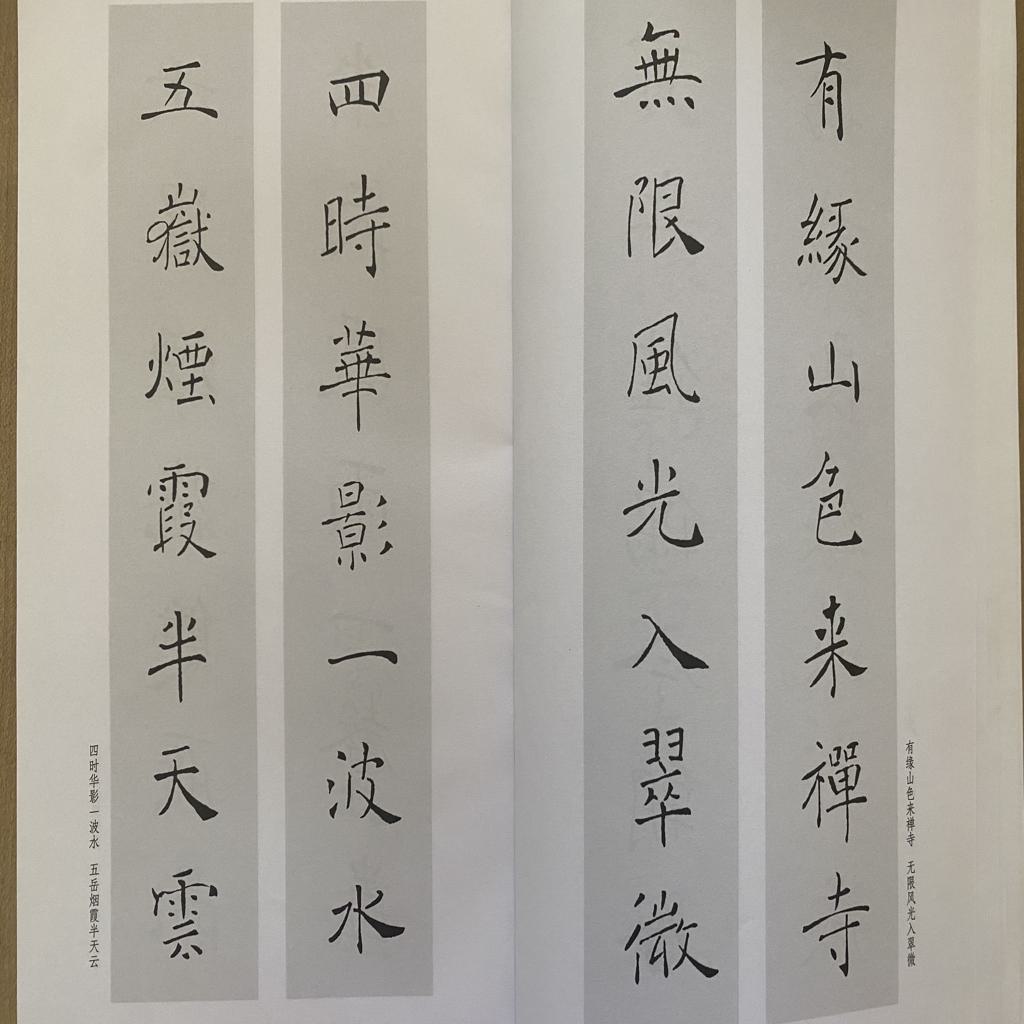 有緣山色来禪寺
無限風光入翠微
有缘山色来禅寺 无限风光入翠微
四時華影一波水
五嶽煙霞半天雲
四时华影一波水 五岳烟霞半天云